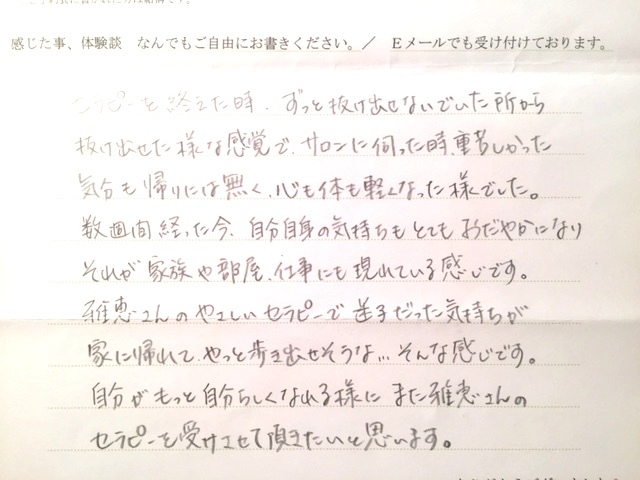 感じた事、体験談　なんでもご自由にお書きください。／　Eメールでも受け付けております。
セラピーを終えた時、ずっと抜け出せないでいた所から
抜け出せた様な感覚で、サロンに伺った時、重苦しかった
気分も帰りには無く、心も体も軽くなった様でした。
数週間経った今、自分自身の気持ちもとてもおだやかになり
それが家族や部屋、仕事にも現れている感じです。
雅恵さんのやさしいセラピーで迷子だった気持ちが
家に帰れて、やっと歩き出せそうな… そんな感じです。
自分がもっと自分らしくなれる様に また雅恵さんの
セラピーを受けさせて頂きたいと思います。